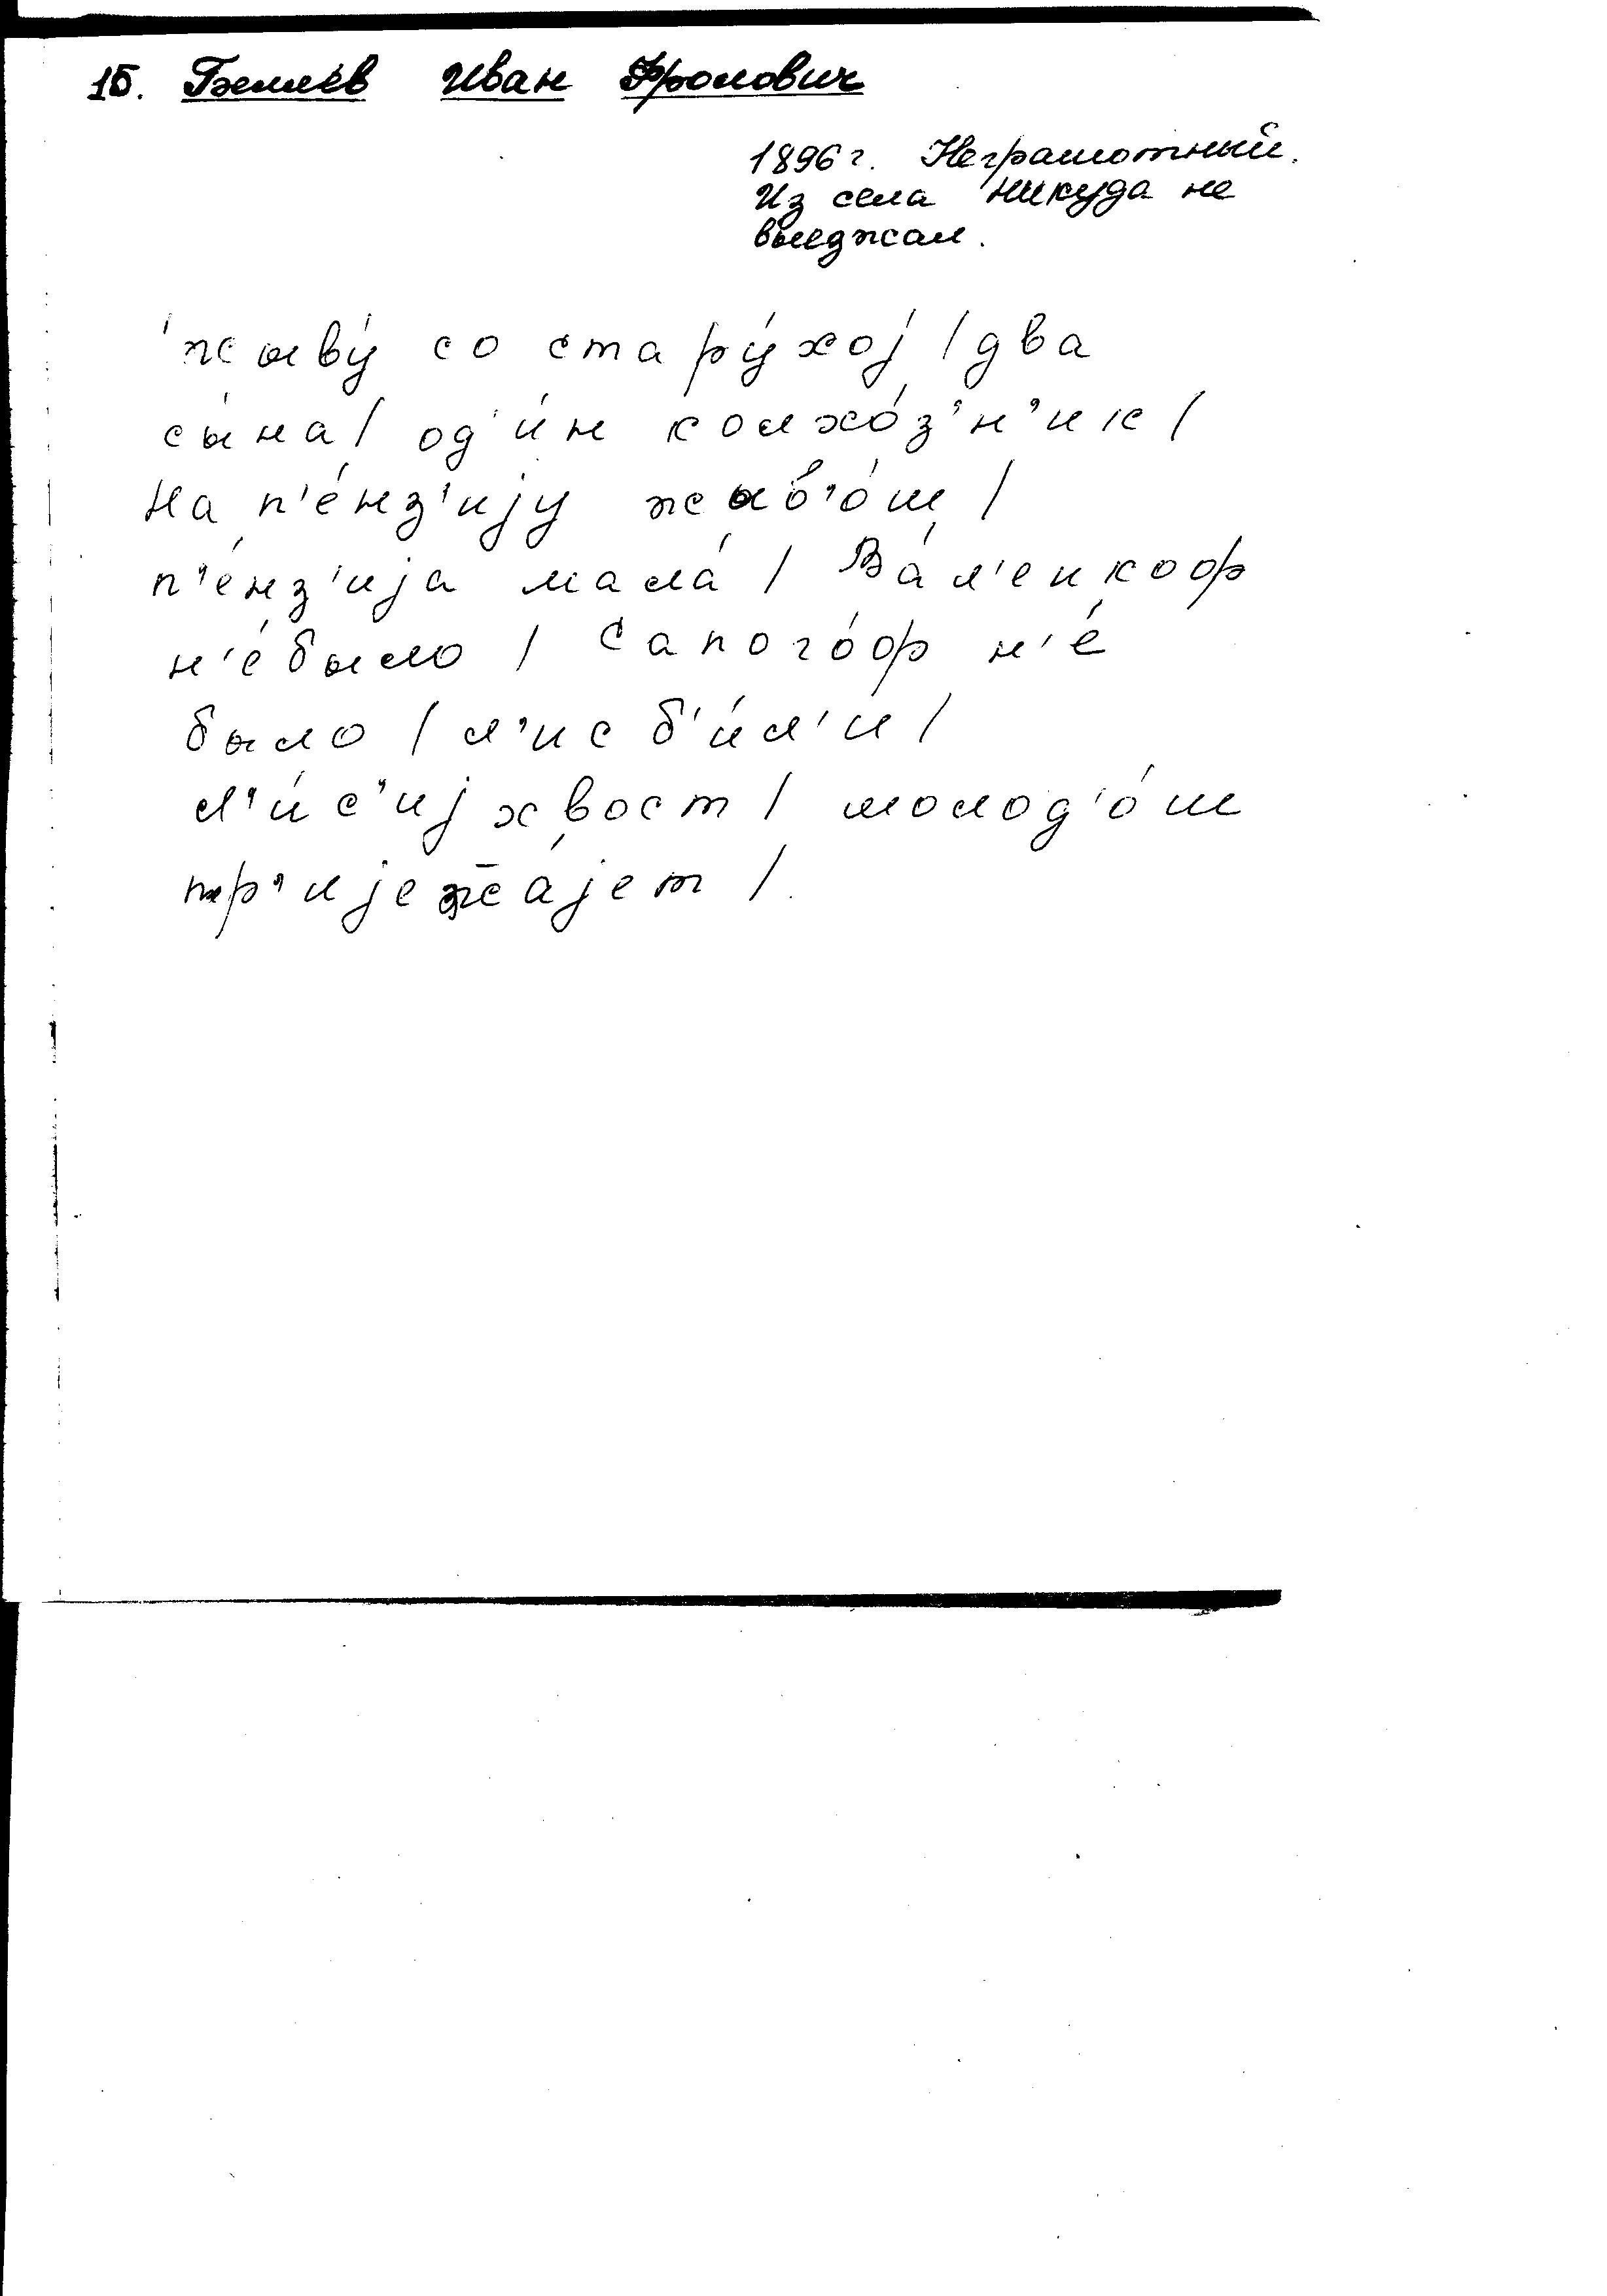 15. Иван Фролович
1896 г. Неграмотный.
Из села никуда не
выеджал.
жыву́ со стару́хој / два
сы́на / од'и́н колхо́з'н'ик /
На п'е́нз'ију жыв'о́ш /
п'е́нз'ија мала́ / Ва́л'енкоф
н'е́было / Сапого́ф н'е́
было / л'ис б'и́л'и /
л'и́с'иј хвост / молод'о́ш
пр'ијеж̄а́јет /